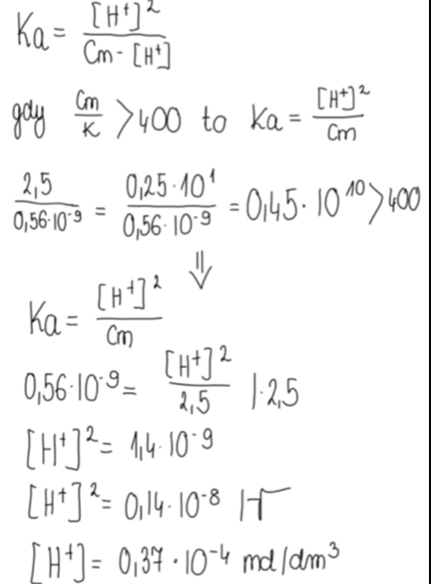 Ka = [H⁺]² / Cm - [H⁺]
gdy Cm/K > 400 to Ka = [H⁺]² / Cm
2,5 / 0,56·10⁻⁹ = 0,25·10¹ / 0,56·10⁻⁹ = 0,45·10¹⁰ > 400
⇓
Ka = [H⁺]² / Cm
0,56·10⁻⁹ = [H⁺]² / 2,5 |·2,5
[H⁺]² = 1,4·10⁻⁹
[H⁺]² = 0,14·10⁻⁸ |√
[H⁺] = 0,37·10⁻⁴ mol/dm³